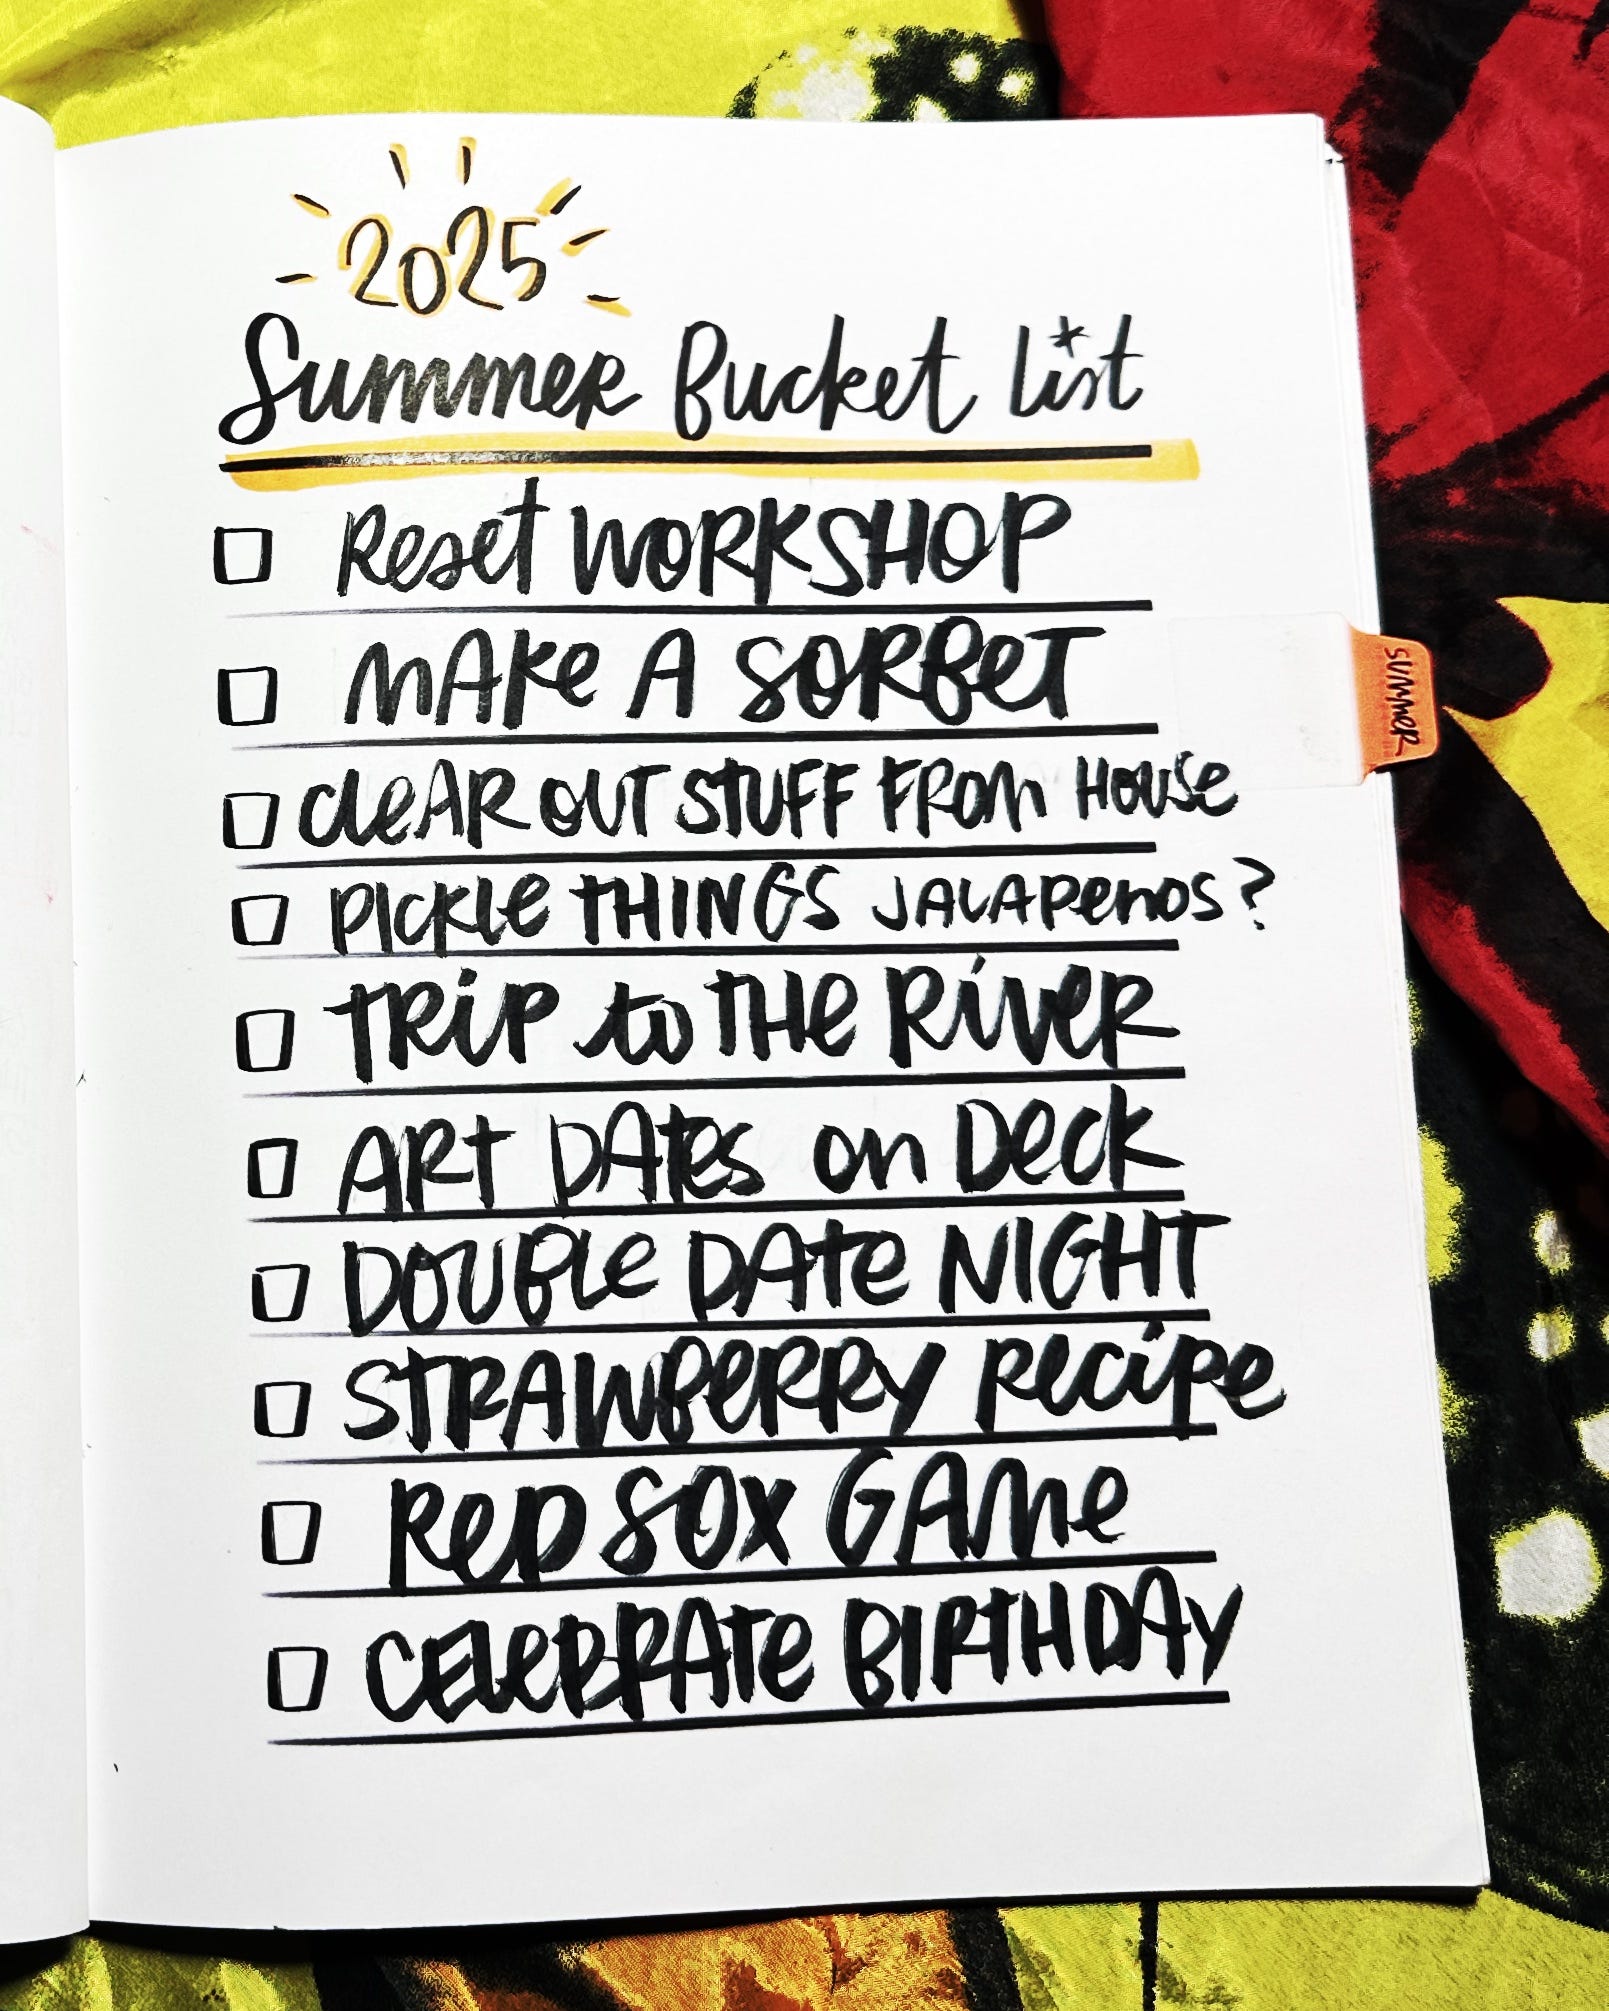 2025
Summer Bucket List
Reset WORKSHOP
MAKe A SORBeT
CleAR OUT STUFF FROM HOUSe
PICKLe THINGS JALAPeNOS?
TRiP to THe RiveR
ART DATes on Deck
DOUBLe DATe NIGHT
STRAWBeRRY Recipe
ReD SOX GAMe
CELeBRATe BIRTHDAY
SUMMeR